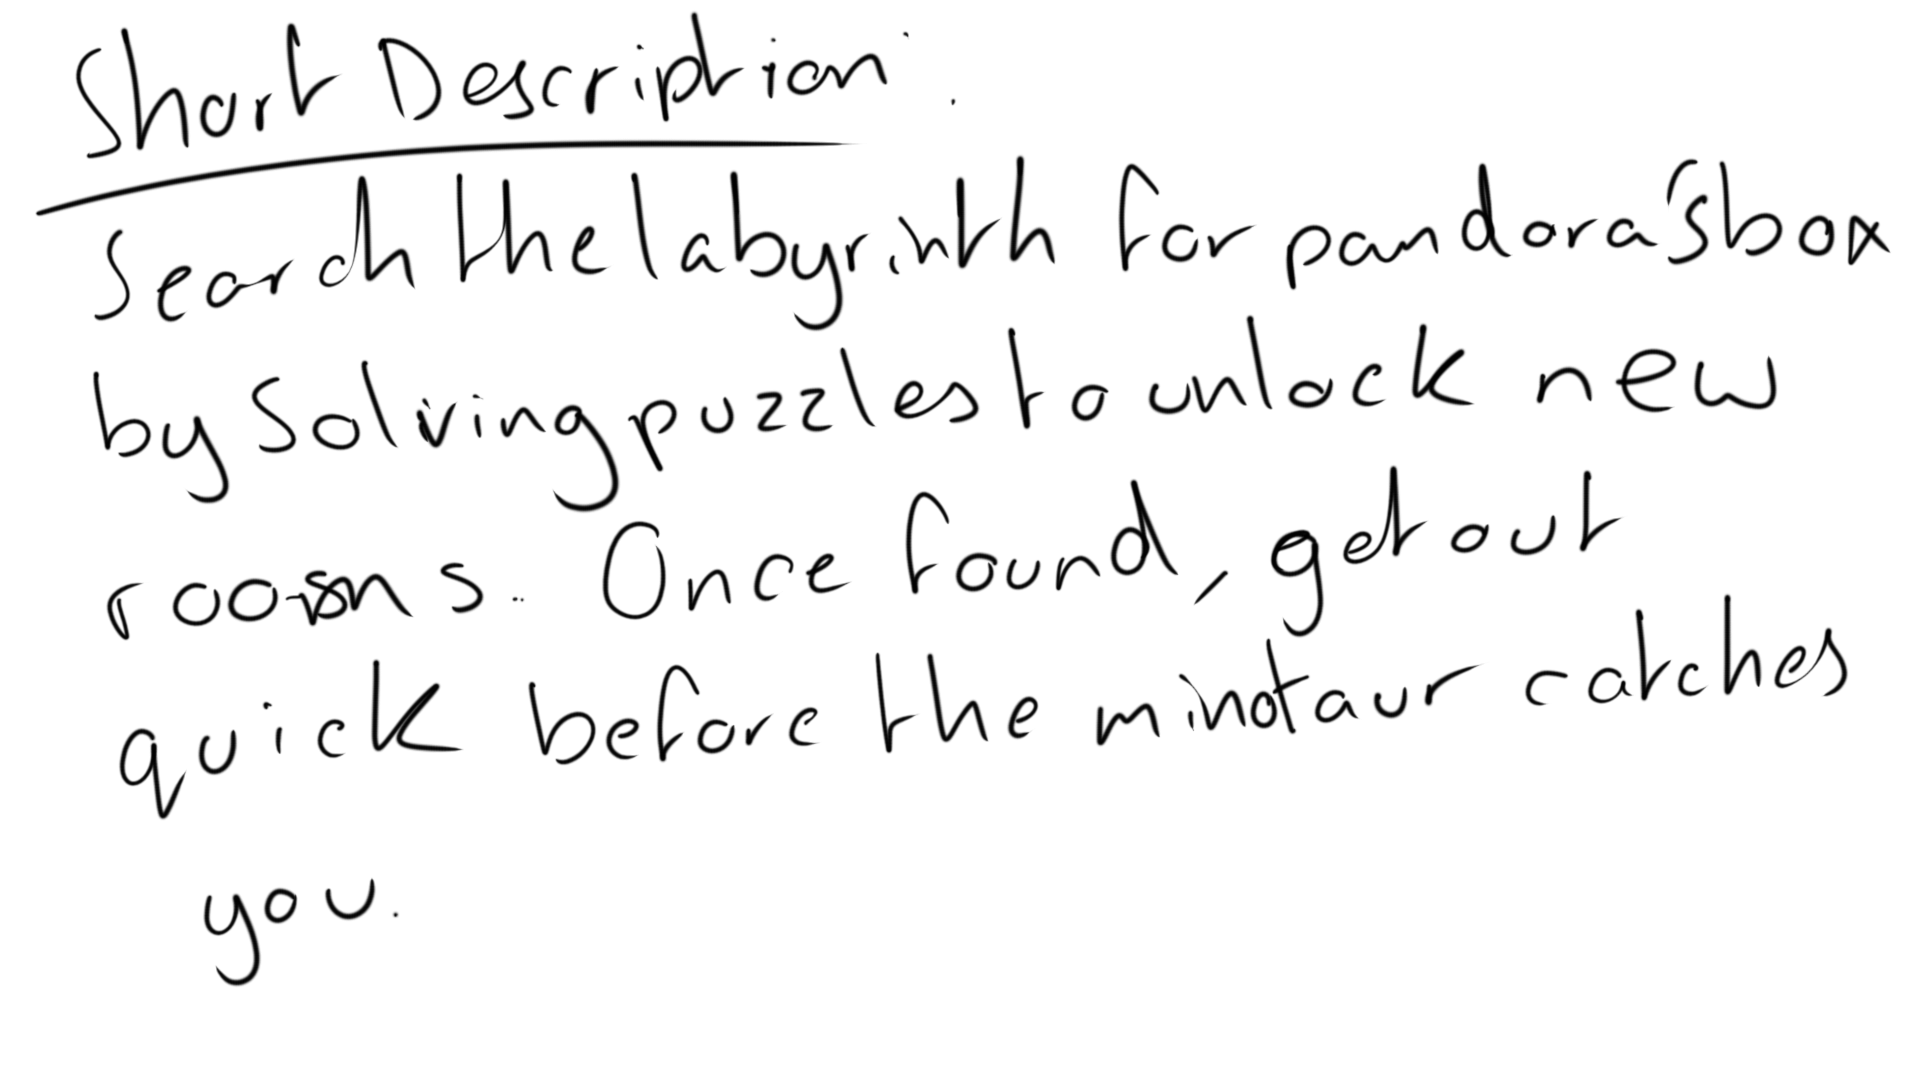 Short Description:
Search the labyrinth for pandora's box
by Solving puzzles to unlock new
rooms. Once found, get out
quick before the minotaur catches
you.